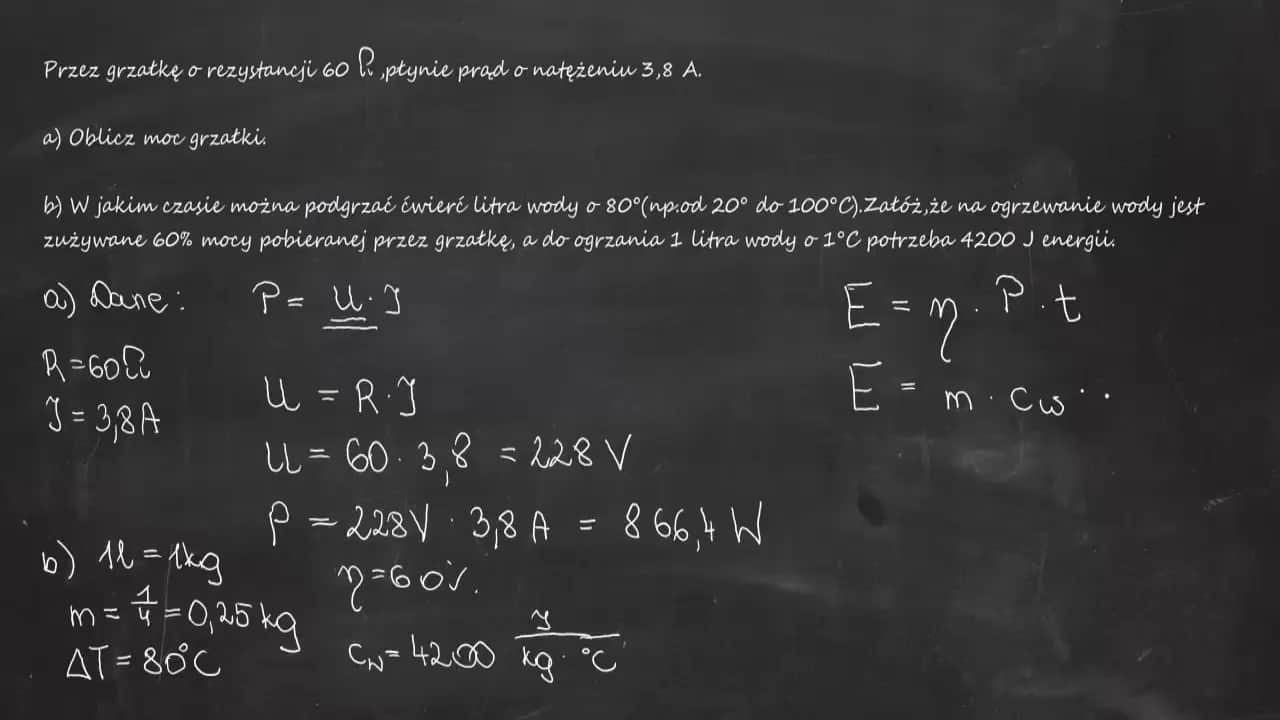 Przez grzałkę o rezystancji 60 Ω ,płynie prąd o natężeniu 3,8 A.
a) Oblicz moc grzałki.
b) W jakim czasie można podgrzać ćwierć litra wody o 80°(np.od 20° do 100°C).Załóż,że na ogrzewanie wody jest
zużywane 60% mocy pobieranej przez grzałkę, a do ogrzania 1 litra wody o 1°C potrzeba 4200 J energii.
a) Dane:
R=60Ω
J = 3,8A
P = U·J
U = R·J
U = 60·3,8 = 228 V
P = 228V · 3,8 A = 866,4 W
b) 1l = 1kg
m = 1/4 = 0,25 kg
ΔT = 80°C
η=60%.
cw = 4200 J/kg·°C
E = η·P·t
E = m·cw··